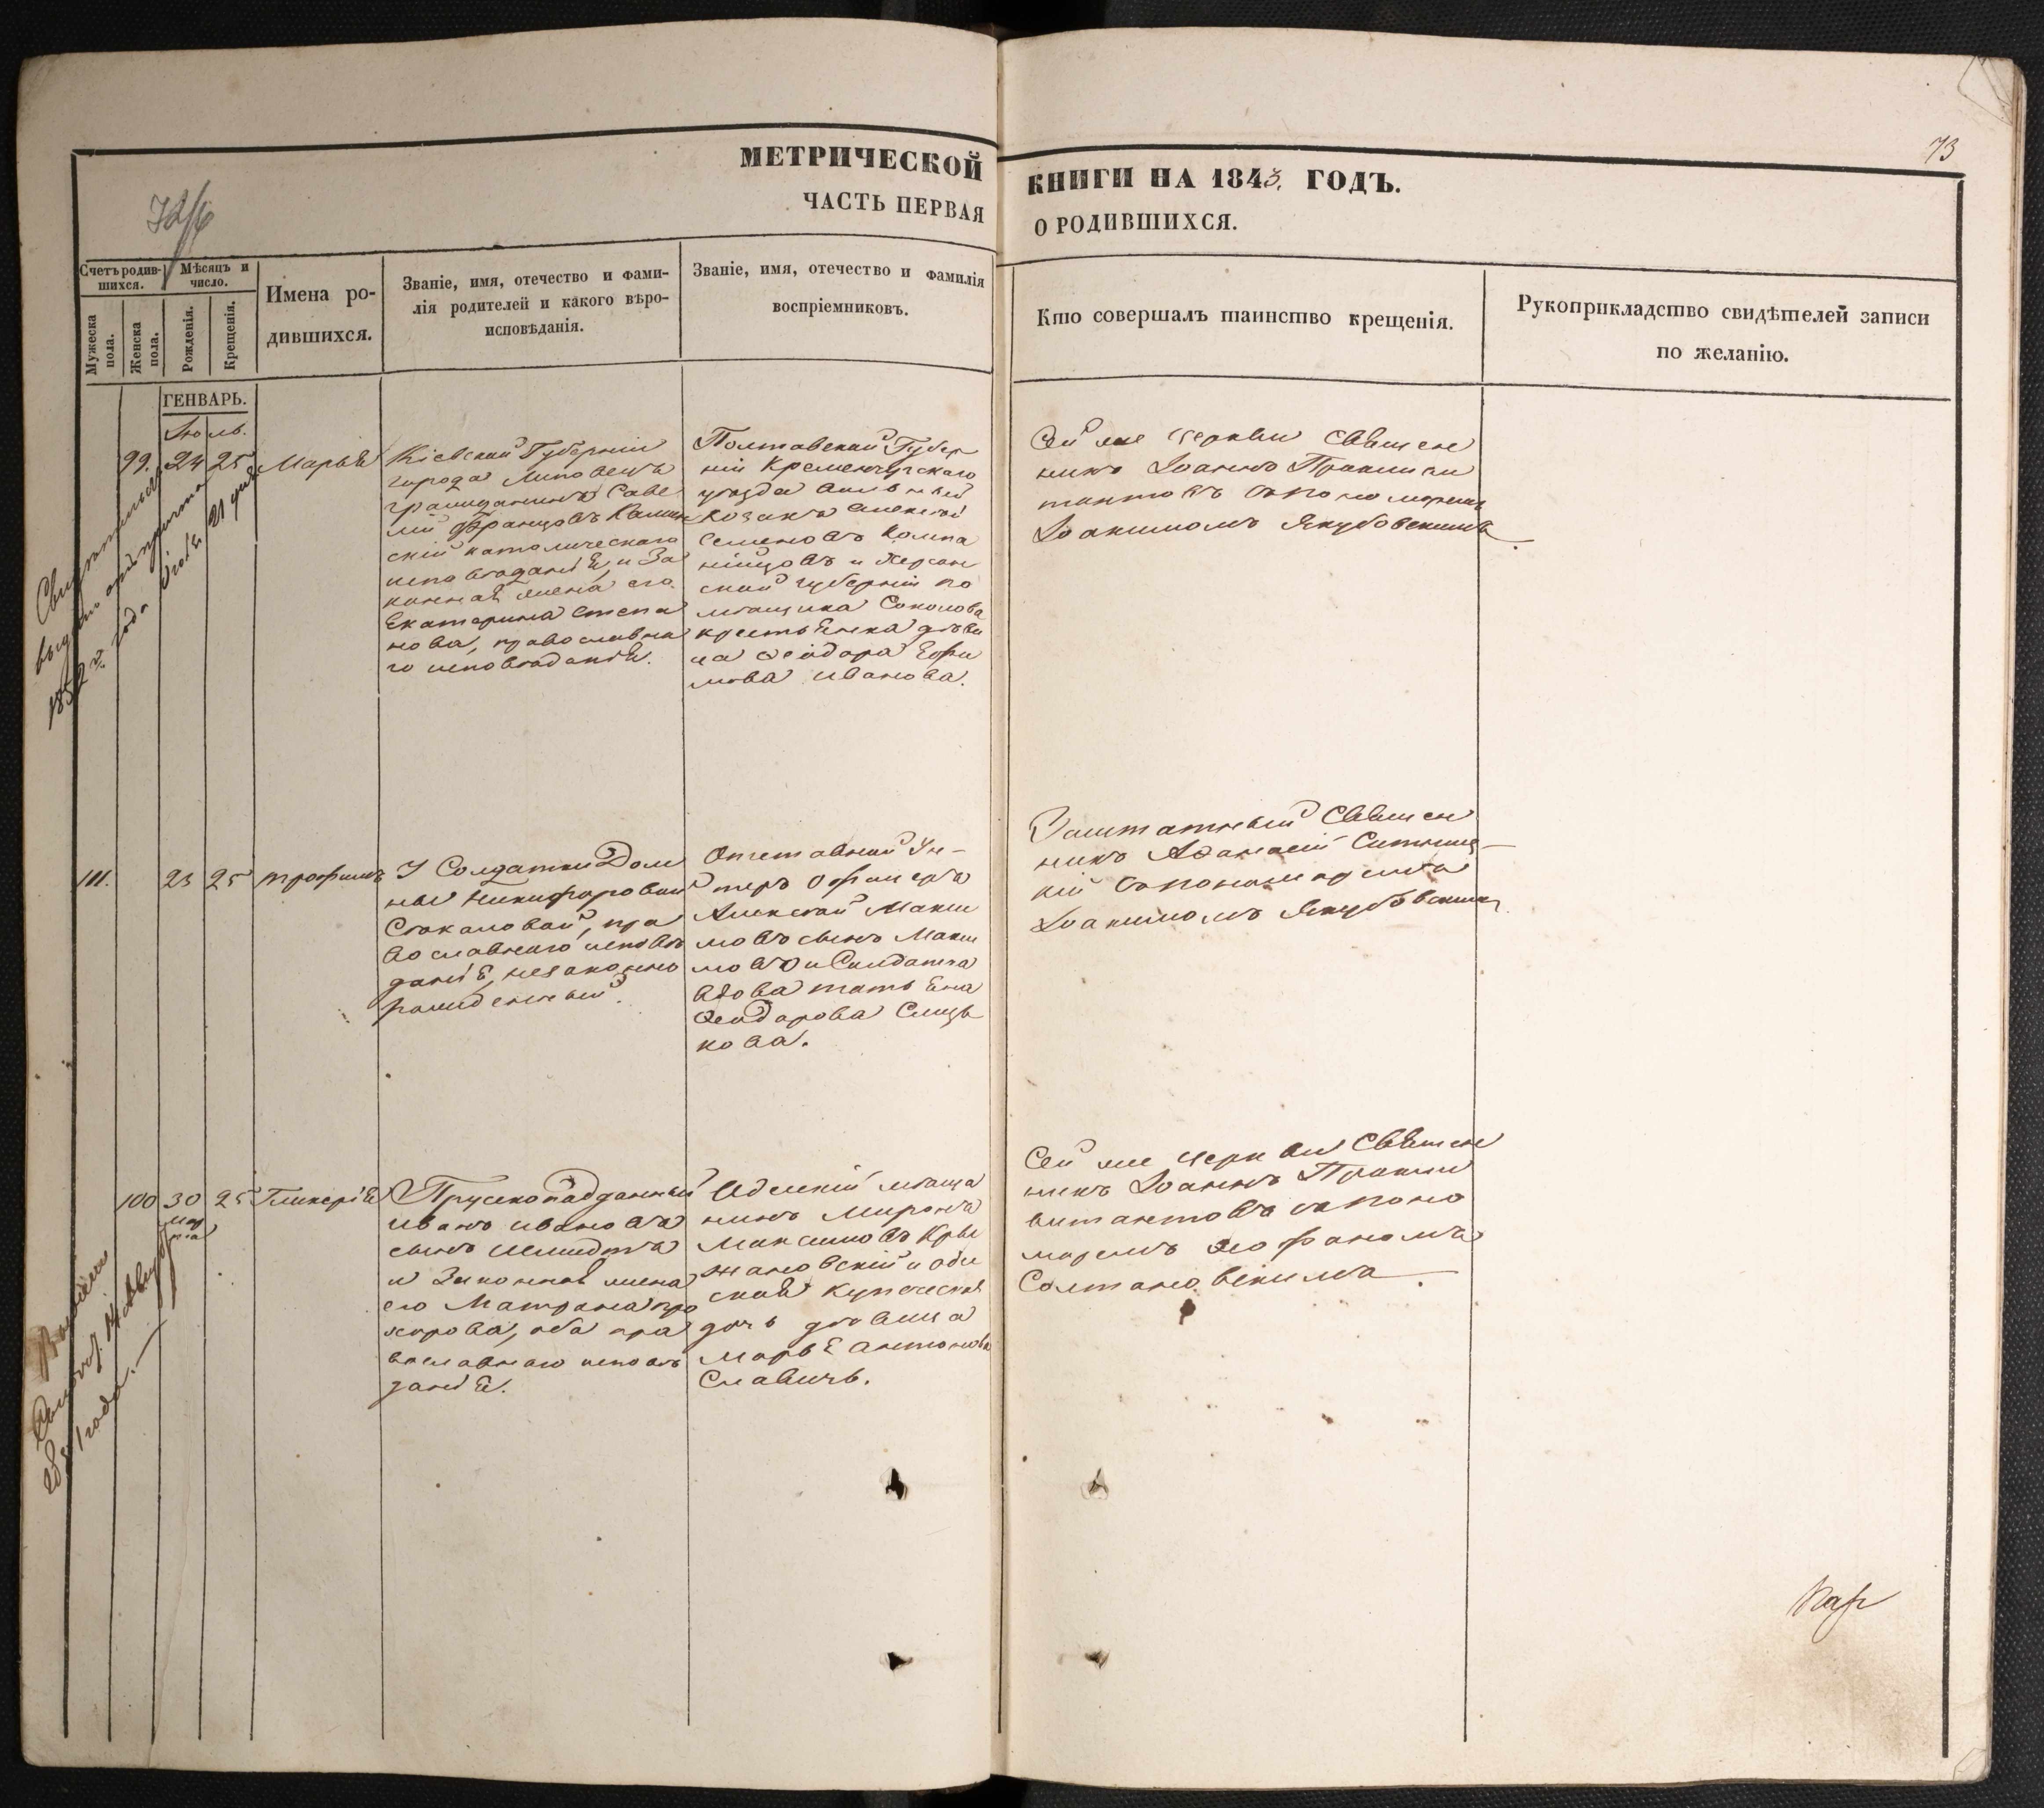 73
МЕТРИЧЕСКОЙ
КНИГИ НА 1843. ГОДЪ.
ЧАСТЬ ПЕРВАЯ
О РОДИВШИХСЯ.
Счетъ родив-
шихся.
Мѣсяцъ и
число.
Мужеска
пола.
Женска
пола.
Рожденія.
Крещенія.
Имена ро-
дившихся.
Званіе, имя, отечество и фами-
лія родителей и какого вѣро-
исповѣданія.
Званіе, имя, отечество и фамилія
воспріемниковъ.
Кто совершалъ таинство крещенія.
Рукоприкладство свидѣтелей записи
по желанію.
ГЕНВАРЬ.
Іюль.
99. 24 25 Марья
Кіевской Губерніи
города Липовецъ
гражданинъ Саве
лій Францовъ Калин
скій католическаго
исповѣданія, и За
конная жена его
Екатерина Степа
нова, православна
го исповѣданія.
Полтавской Губер
ніи Кременчугскаго
уѣзда
козакъ Алексѣй
Семеновъ Компа
нійцовъ и Херсон
ской губерніи по
мѣщика Соколова
крестьянка дѣви
ца Ѳеодора Ефи
мова Иванова.
Сей же церкви Священ
никъ Іоаннъ
съ пономаремъ
Іоакимомъ Якубовскимъ.
выдано
1852 года 21 дня
111. 23 25 Трофимъ
У Солдатки Дом
ны Никифоровой
Стокаловой, пра
вославнаго исповѣ
данія, незаконно
рожденный.
Отставной Ун-
теръ офицеръ
Алексѣй Макси
мовъ сынъ Макси
мовъ и Солдатка
вдова татьяна
Ѳеодорова Слизь
кова.
Заштатный Священ
никъ Аѳанасій Ситниц-
кій съ пономаремъ
Іоакимомъ Якубовскимъ.
100 30 25 Гликерія
Марта
Прускоподданный
Иванъ Ивановъ
сынъ Шмидтъ
и Законная жена
его Матрона про
хорова, оба пра
вославнаго исповѣ
данія.
Одескій мѣща
нинъ Миронъ
Максимовъ Кры
жановскій и оде
ская купеческая
дочь дѣвица
Марья Антонова
Славичъ.
Сей же церкви Священ
никъ Іоаннъ
съ поно
маремъ Ѳеофаномъ
Солтановскимъ.
года.